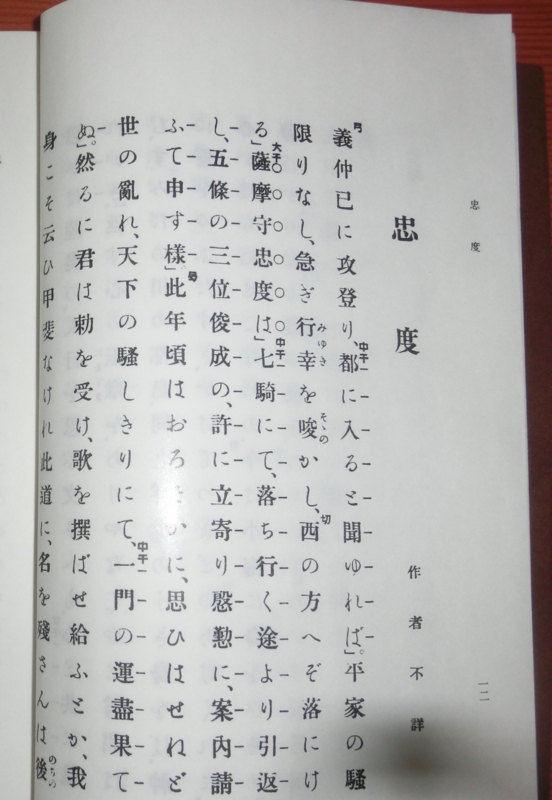 忠度
一二
忠度
作者不詳
義仲已に攻登り、都に入ると聞ゆれば。」平家の騷
限りなし、急ぎ行幸を唆かし、西の方へぞ落にけ
る」薩摩守忠度は」七騎にて、落ち行く途より引返
し、五條の三位俊成の、許に立寄り慇懃に、案内請
ふて申す樣」此年頃はおろそかに、思ひはせねど
世の亂れ、天下の騷しきりにて、一門の運盡果て
ぬ。」然るに君は勅を受け、歌を撰ばせ給ふとか、我
身こそ云ひ甲斐なけれ此道に、名を殘さんは後